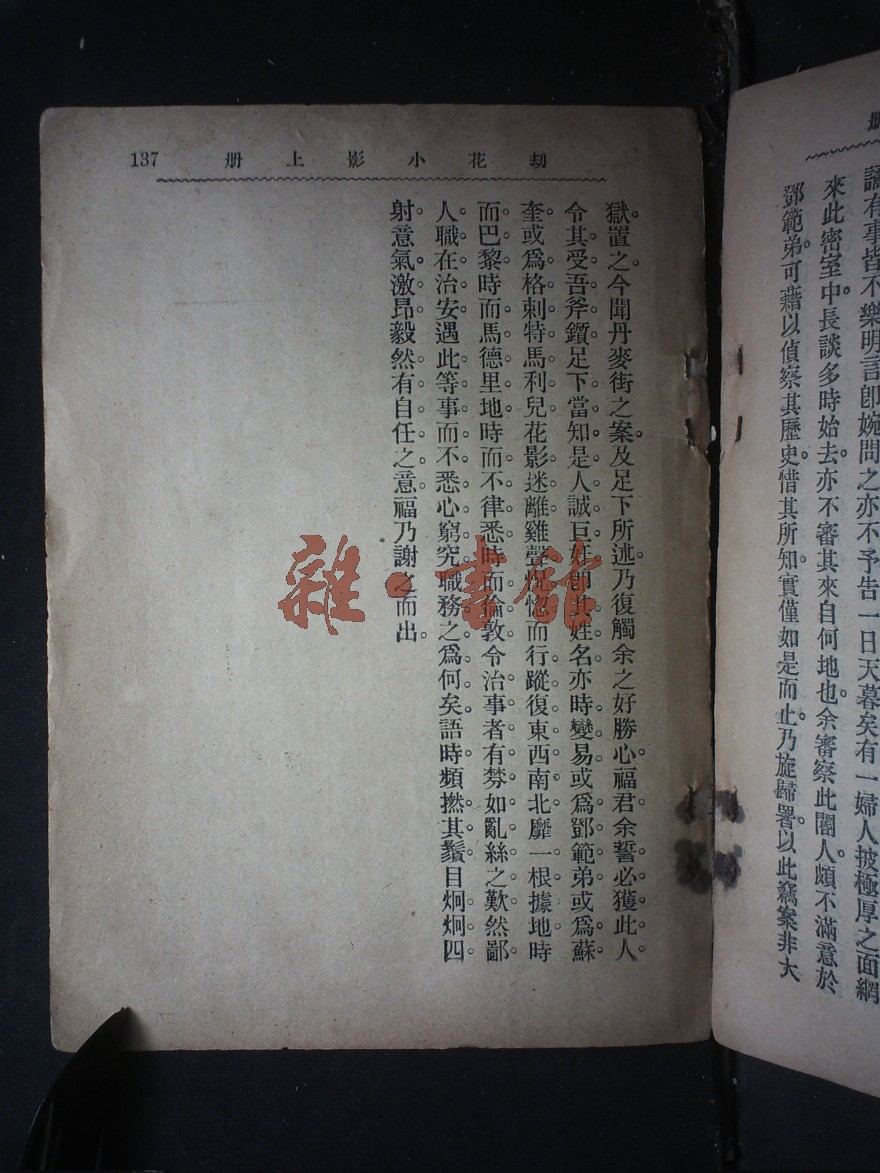 册
謂有事皆不樂明言卽婉問之亦不予告一日天暮矣有一婦人披極厚之面網
來此密室中長談多時始去亦不審其來自何地也余審察此閽人頗不滿意於
鄧範弟可藉以偵察其歷史惜其所知實僅如是而止乃旋歸署以此竊案非大
劫花小影上册 137
獄置之今聞丹麥街之案及足下所述乃復觸余之好勝心福君余誓必獲此人
令其受吾斧鑕足下當知是人誠巨奸卽其姓名亦時變易或爲鄧範弟或爲蘇
奎或爲格刺特馬利兒花影迷離雞聲恍惚而行蹤復東西南北靡一根據地時
而巴黎時而馬德里地時而不律悉時而倫敦令治事者有棼如亂絲之歎然鄙
人職在治安遇此等事而不悉心窮究職務之爲何矣語時頻撚其鬚目炯炯四
射意氣激昂毅然有自任之意福乃謝之而出
雜·書館